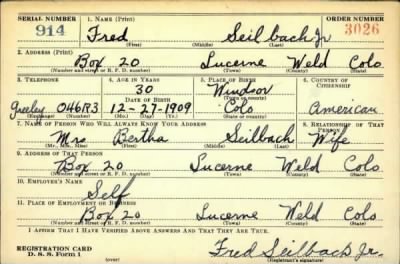 SERIAL NUMBER 1. NAME (Print) ORDER NUMBER
914 Fred Seilbach Jr 3026
(First) (Middle) (Last)
2. ADDRESS (Print)
Box 20 Lucerne Weld Colo
(Number and street or R. F. D. number) (Town) (County) (State)
3. TELEPHONE 4. AGE IN YEARS 5. PLACE OF BIRTH 6. COUNTRY OF CITIZENSHIP
30 Windsor
DATE OF BIRTH (Town or county)
Greeley 046R3 12-27-1909 Colo American
(Exchange) (Number) (Mo.) (Day) (Yr.) (State or country)
7. NAME OF PERSON WHO WILL ALWAYS KNOW YOUR ADDRESS 8. RELATIONSHIP OF THAT PERSON
Mrs Bertha Seilbach Wife
(Mr., Mrs., Miss) (First) (Middle) (Last)
9. ADDRESS OF THAT PERSON
Box 20 Lucerne Weld Colo
(Number and street or R. F. D. number) (Town) (County) (State)
10. EMPLOYER'S NAME
Self
11. PLACE OF EMPLOYMENT OR BUSINESS
Box 20 Lucerne Weld Colo
(Number and street or R. F. D. number) (Town) (County) (State)
I AFFIRM THAT I HAVE VERIFIED ABOVE ANSWERS AND THAT THEY ARE TRUE.
REGISTRATION CARD
D. S. S. Form 1 (over) Fred Seilbach Jr.
(Registrant's signature)